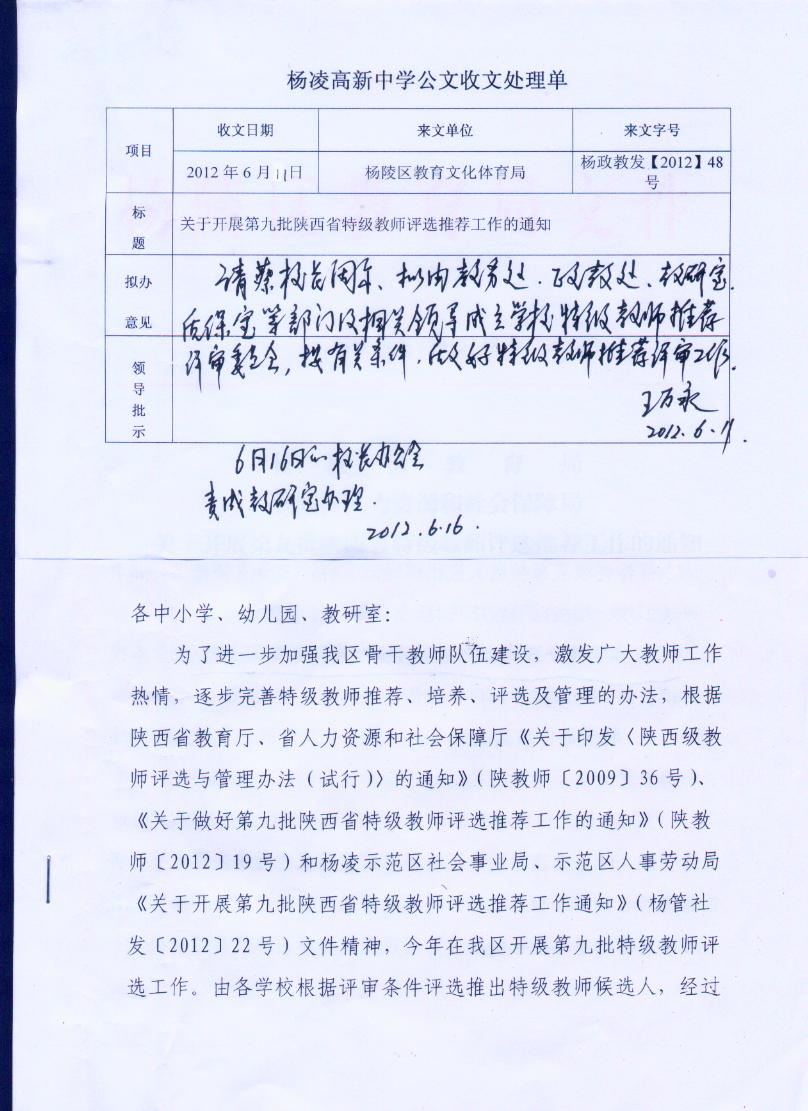 杨凌高新中学公文收文处理单
项目
收文日期
来文单位
来文字号
2012 年 6 月 11 日
杨陵区教育文化体育局
杨政教发【2012】48
号
标
题
关于开展第九批陕西省特级教师评选推荐工作的通知
拟办
意见
请蔡校长阅示、拟由教务处、政教处、教研室、
质保室等部门及相关领导成立学校特级教师推荐
评审委员会，按有关条件，做好特级教师推荐评审工作.
领
导
批
示
王万永
2012.6.11.
6月16日 校长办公会
责成教研室办理.
2012.6.16.
各中小学、幼儿园、教研室：
为了进一步加强我区骨干教师队伍建设，激发广大教师工作
热情，逐步完善特级教师推荐、培养、评选及管理的办法，根据
陕西省教育厅、省人力资源和社会保障厅《关于印发〈陕西级教
师评选与管理办法（试行）〉的通知》（陕教师〔2009〕36 号）、
《关于做好第九批陕西省特级教师评选推荐工作的通知》（陕教
师〔2012〕19 号）和杨凌示范区社会事业局、示范区人事劳动局
《关于开展第九批陕西省特级教师评选推荐工作通知》（杨管社
发〔2012〕22 号）文件精神，今年在我区开展第九批特级教师评
选工作。由各学校根据评审条件评选推出特级教师候选人，经过